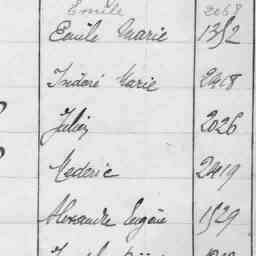 Emile 2068
Emile Marie 1352
Isidore Marie 2418
Julien 2026
Mederic 2419
Alexandre Eugène 1529